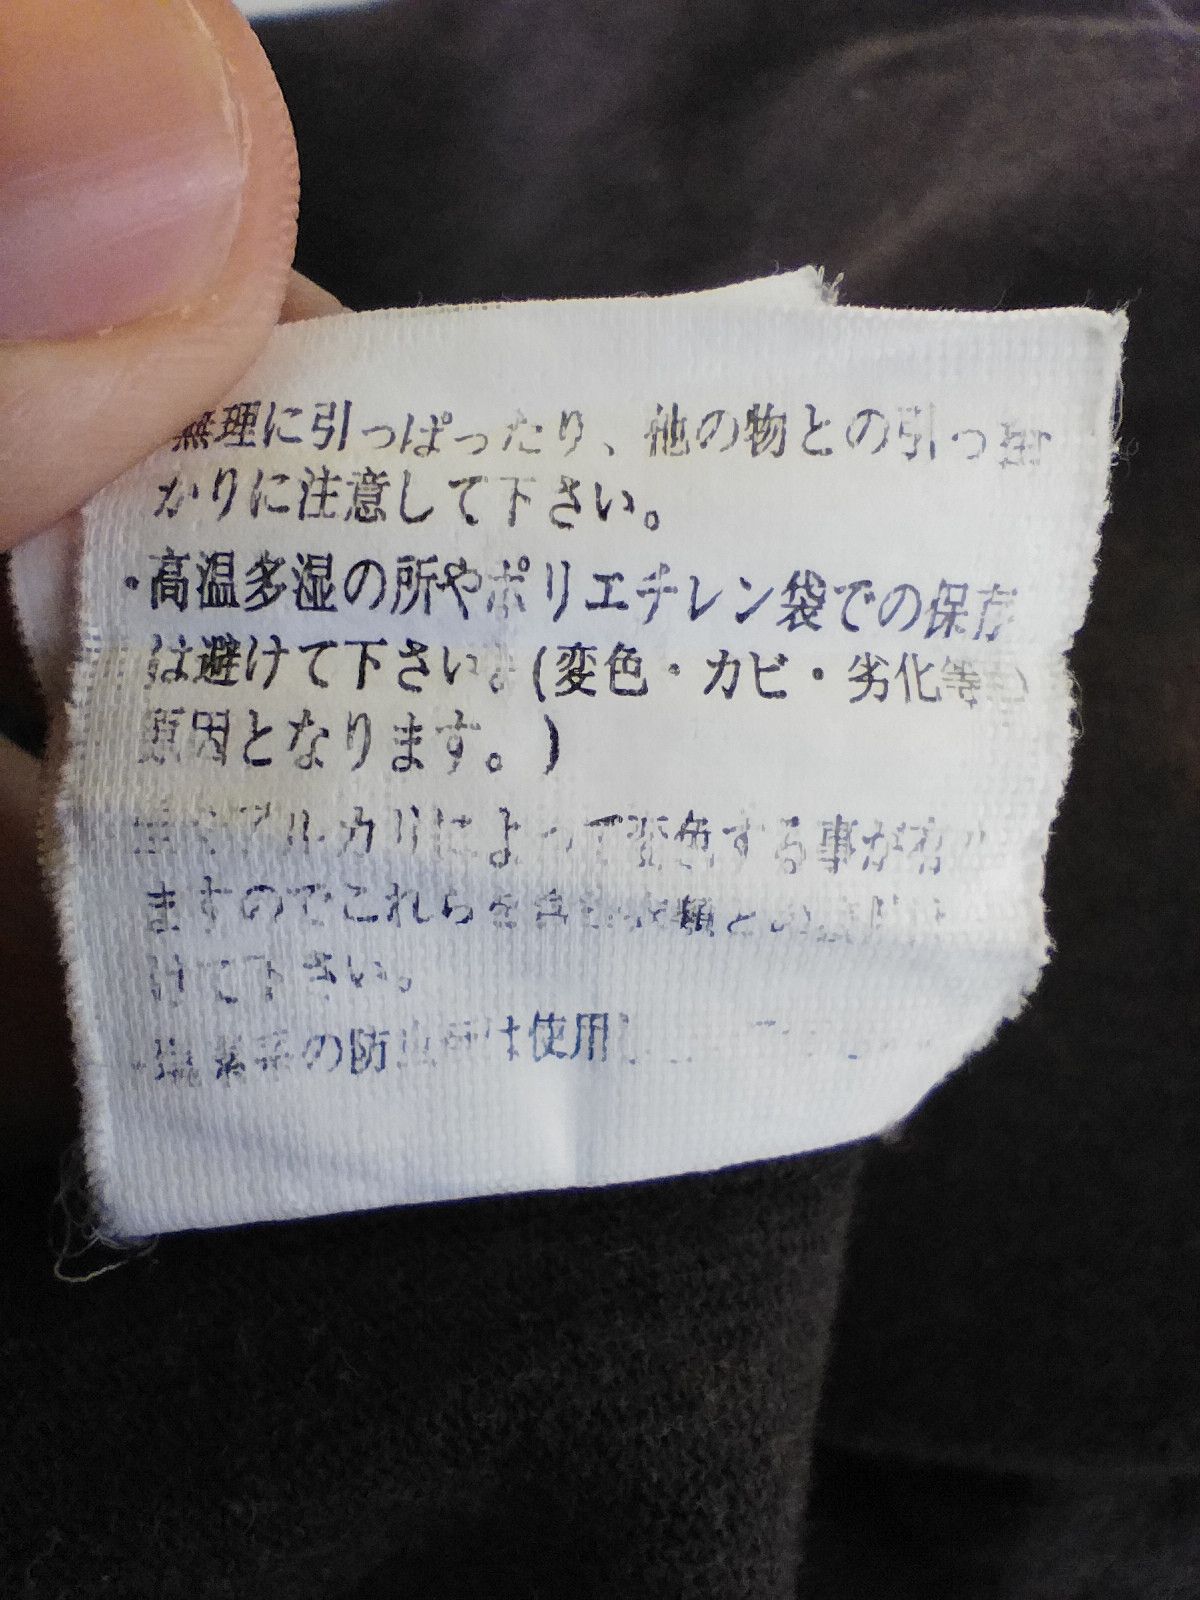 無理に引っぱったり、他の物との引っ掛
かりに注意して下さい。
・高温多湿の所やポリエチレン袋での保存
は避けて下さい。(変色・カビ・劣化等の
原因となります。)
アルカリによって変色する事が有
ますのでこれらを含む衣類との
けて下さい。
の防虫剤は使用